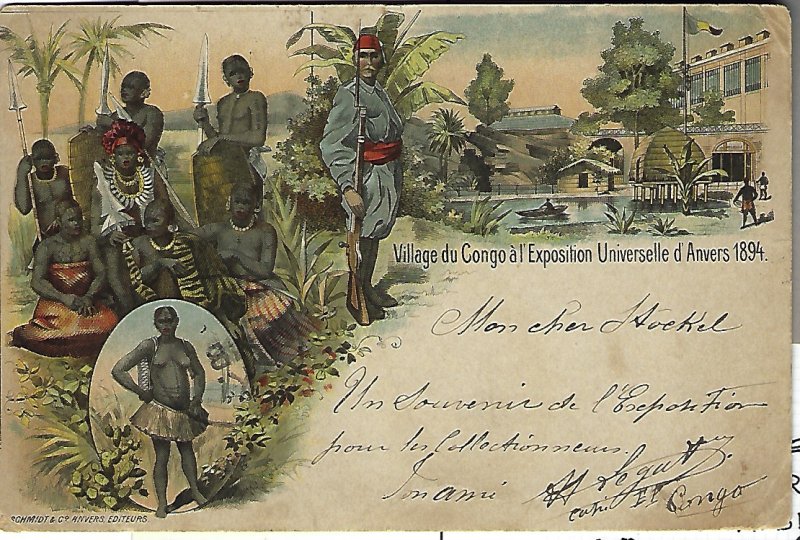 Village du Congo à l'Exposition Universelle d'Anvers 1894.
Mon cher Stockel
Un Souvenir de l'Exposition
pour les Collectionneurs.
Ton ami
Congo
SCHMIDT & Cº ANVERS, EDITEURS.